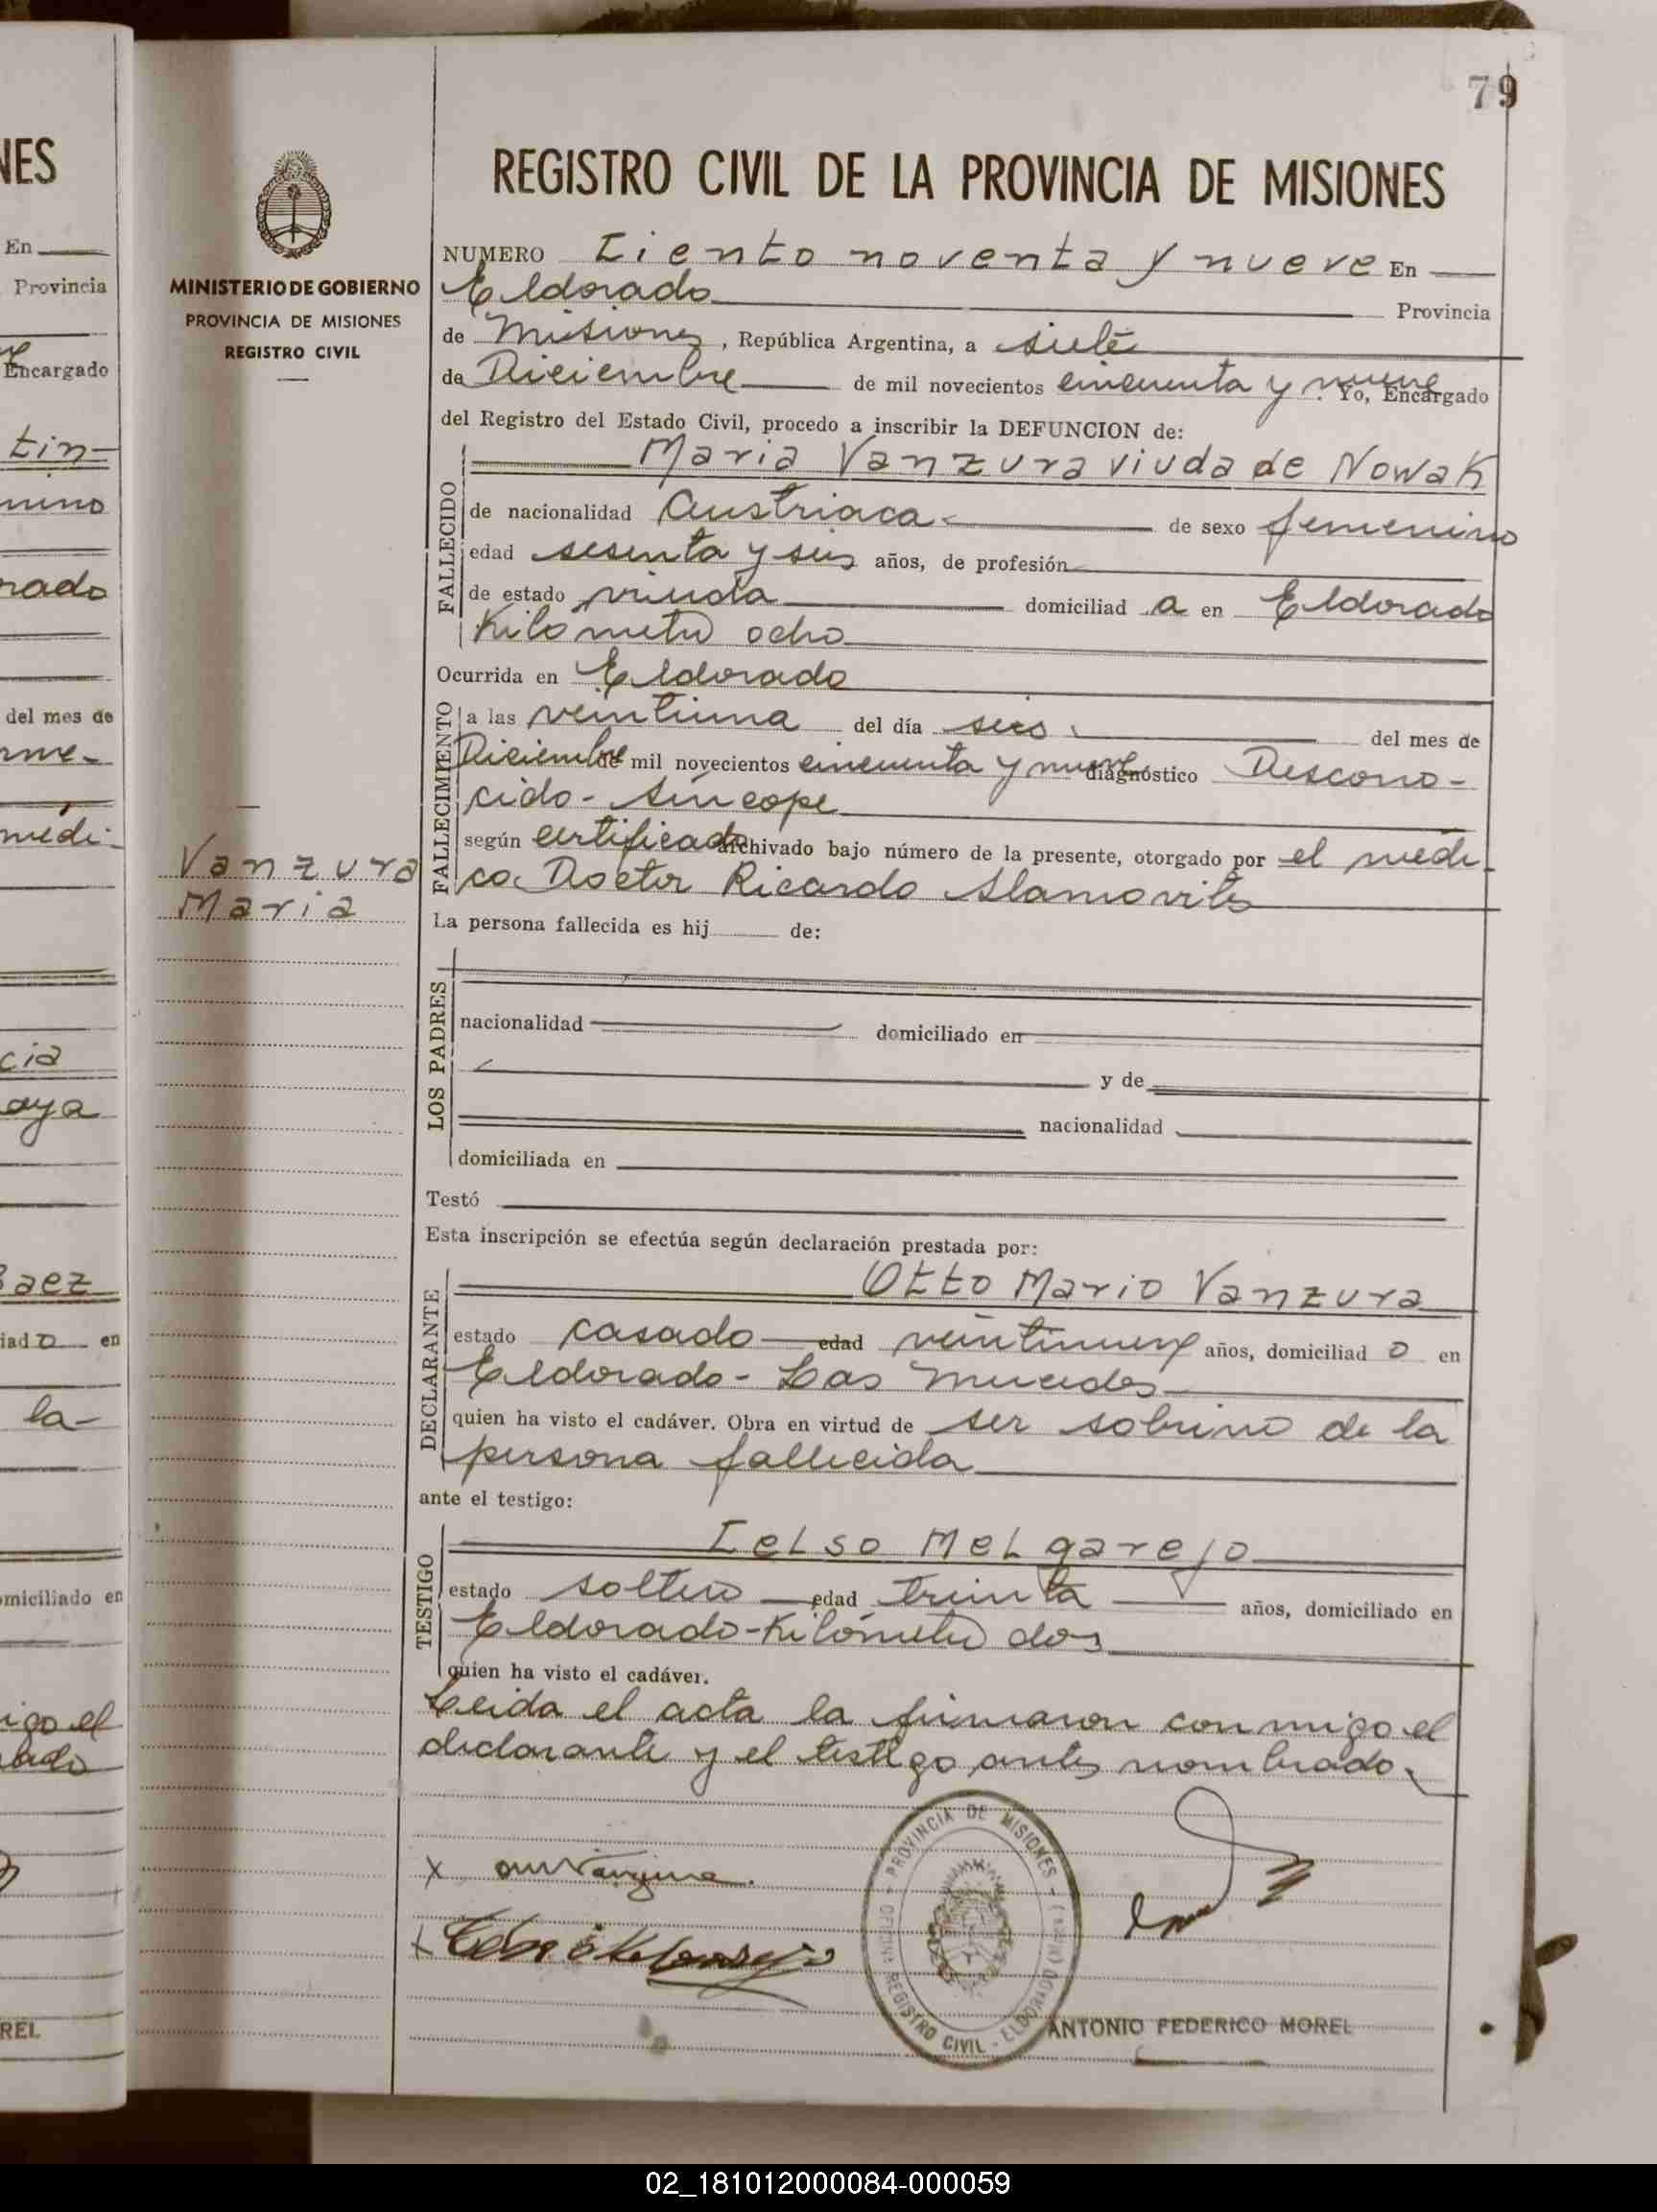 79
NES
En
Provincia
Encargado
tin-
nino
rado
del mes de
me-
medi-
cia
aya
Baez
iad o en
la-
omiciliado en
igo el
REL
MINISTERIO DE GOBIERNO
PROVINCIA DE MISIONES
REGISTRO CIVIL
Vanzura
Maria
REGISTRO CIVIL DE LA PROVINCIA DE MISIONES
NUMERO Ciento noventa y nueve En
Eldorado Provincia
de Misiones, República Argentina, a siete
de Diciembre de mil novecientos cincuenta y nueve. Yo, Encargado
del Registro del Estado Civil, procedo a inscribir la DEFUNCION de:
Maria Vanzura viuda de Nowak
FALLECIDO
de nacionalidad Austriaca de sexo femenino
edad sesenta y seis años, de profesión
de estado viuda domiciliad a en Eldorado
Kilometro ocho
Ocurrida en Eldorado
FALLECIMIENTO
a las veintiuna del día seis del mes de
Diciembre de mil novecientos cincuenta y nueve diagnóstico Descono-
cido - síncope
según certificado archivado bajo número de la presente, otorgado por el médi-
co Doctor Ricardo
La persona fallecida es hij de:
LOS PADRES
nacionalidad domiciliado en
y de
nacionalidad
domiciliada en
Testó
Esta inscripción se efectúa según declaración prestada por:
Otto Mario Vanzura
DECLARANTE
estado casado edad veintinueve años, domiciliad o en
Eldorado - Las Mercedes
quien ha visto el cadáver. Obra en virtud de ser sobrino de la
persona fallecida
ante el testigo:
Celso Melgarejo
TESTIGO
estado soltero edad treinta años, domiciliado en
Eldorado - Kilómetro dos
quien ha visto el cadáver.
Leida el acta la firmaron conmigo el
declarante y el testigo antes nombrado.
x
x
PROVINCIA DE MISIONES
OFICINA REGISTRO CIVIL - ELDORADO
ANTONIO FEDERICO MOREL
02_181012000084-000059